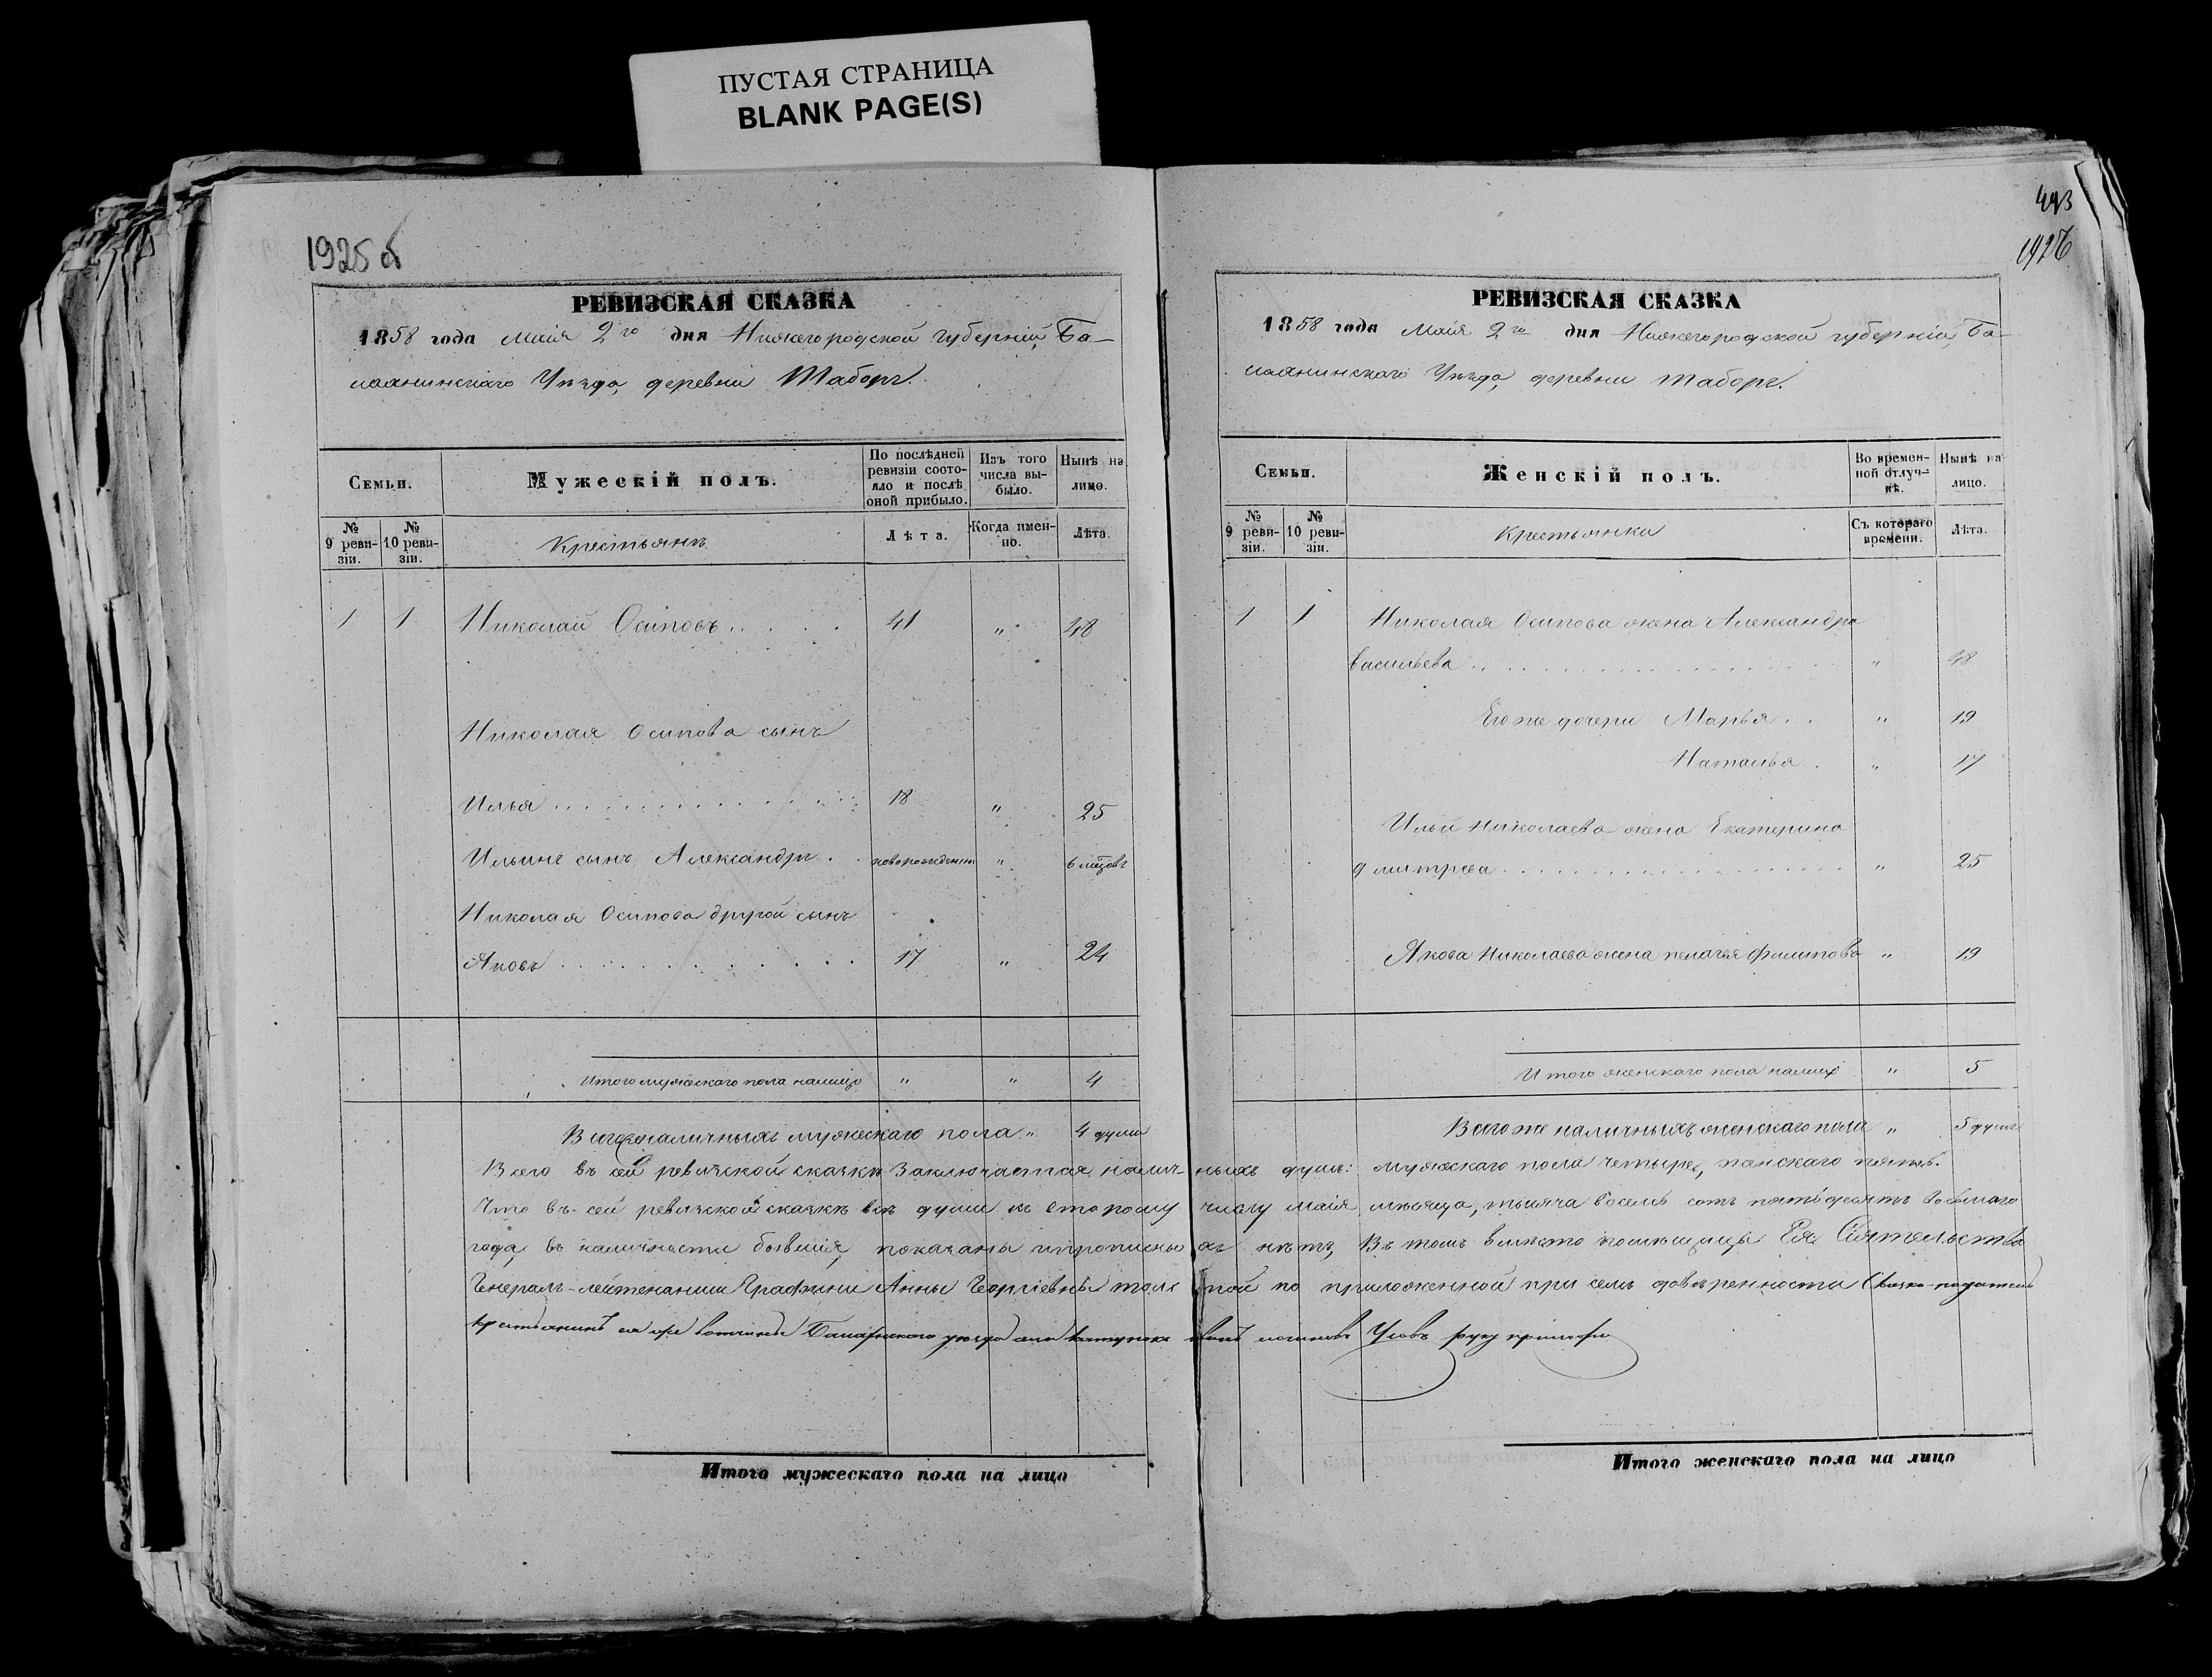 ПУСТАЯ СТРАНИЦА
BLANK PAGE(S)
1925 об
РЕВИЗСКАЯ СКАЗКА
1858 года Маія 2го дня Нижегородской губерніи, Ба-
лахнинскаго Уѣзда, деревни Таборъ.
Семьи.
Мужескій полъ.
По послѣдней ревизіи состо-яло и послѣ оной прибыло.
Изъ того числа вы-было.
Нынѣ на лицо.
№ 9 реви-зіи.
№ 10 реви-зіи.
Крестьянъ
Лѣта.
Когда имен-но.
Лѣта.
1 1 Николай Осиповъ . . . . . 41 " 48
Николая Осипова сынъ
Илья . . . . . . . . . . . . . . 18 " 25
Ильинъ сынъ Александръ . . новорожденный " 6 мѣсяцовъ
Николая Осипова другой сынъ
Яковъ . . . . . . . . . . . . 17 " 24
Итого мужескаго пола налицо " " 4
Всего же наличныхъ мужескаго пола " 4 души
Итого мужескаго пола на лицо
493
1926
РЕВИЗСКАЯ СКАЗКА
1858 года Маія 2го дня Нижегородской губерніи, Ба-
лахнинскаго Уѣзда, деревни Таборъ.
Семьи.
Женскій полъ.
Во времен-ной отлуч-кѣ.
Нынѣ на лицо.
№ 9 реви-зіи.
№ 10 реви-зіи.
Крестьянки
Съ котораго времени.
Лѣта.
1 1 Николая Осипова жена Александра
Васильева . . . . . . . . . . . . . . . . " 48
Его же дочери Марья . . " 19
Наталья . " 17
Ильи Николаева жена Екатерина
Дмитрева . . . . . . . . . . . . . . . . " 25
Якова Николаева жена Пелагея Филипова " 19
Итого женскаго пола налицо " 5
Всего же наличныхъ женскаго пола " 5 душъ
Всего въ сей ревизской сказкѣ заключается налич-ныхъ душъ: мужескаго пола четыре, женскаго пять.
Что въ сей ревизской сказкѣ всѣ души къ второму числу маія мѣсяца, тысяча восемь сотъ пятьдесятъ восьмаго
года, въ наличности бывшія, показаны и прописныхъ нѣтъ, Въ томъ вместо помѣщицы Ея Сіятельства
Генералъ-лейтенанши Графини Анны Георгіевны Толстой по приложенной при семъ довѣренности Сказко-податель
крестьянинъ ея же вотчины Балахнскаго уѣзда села Катунокъ Усовъ руку приложилъ
Итого женскаго пола на лицо